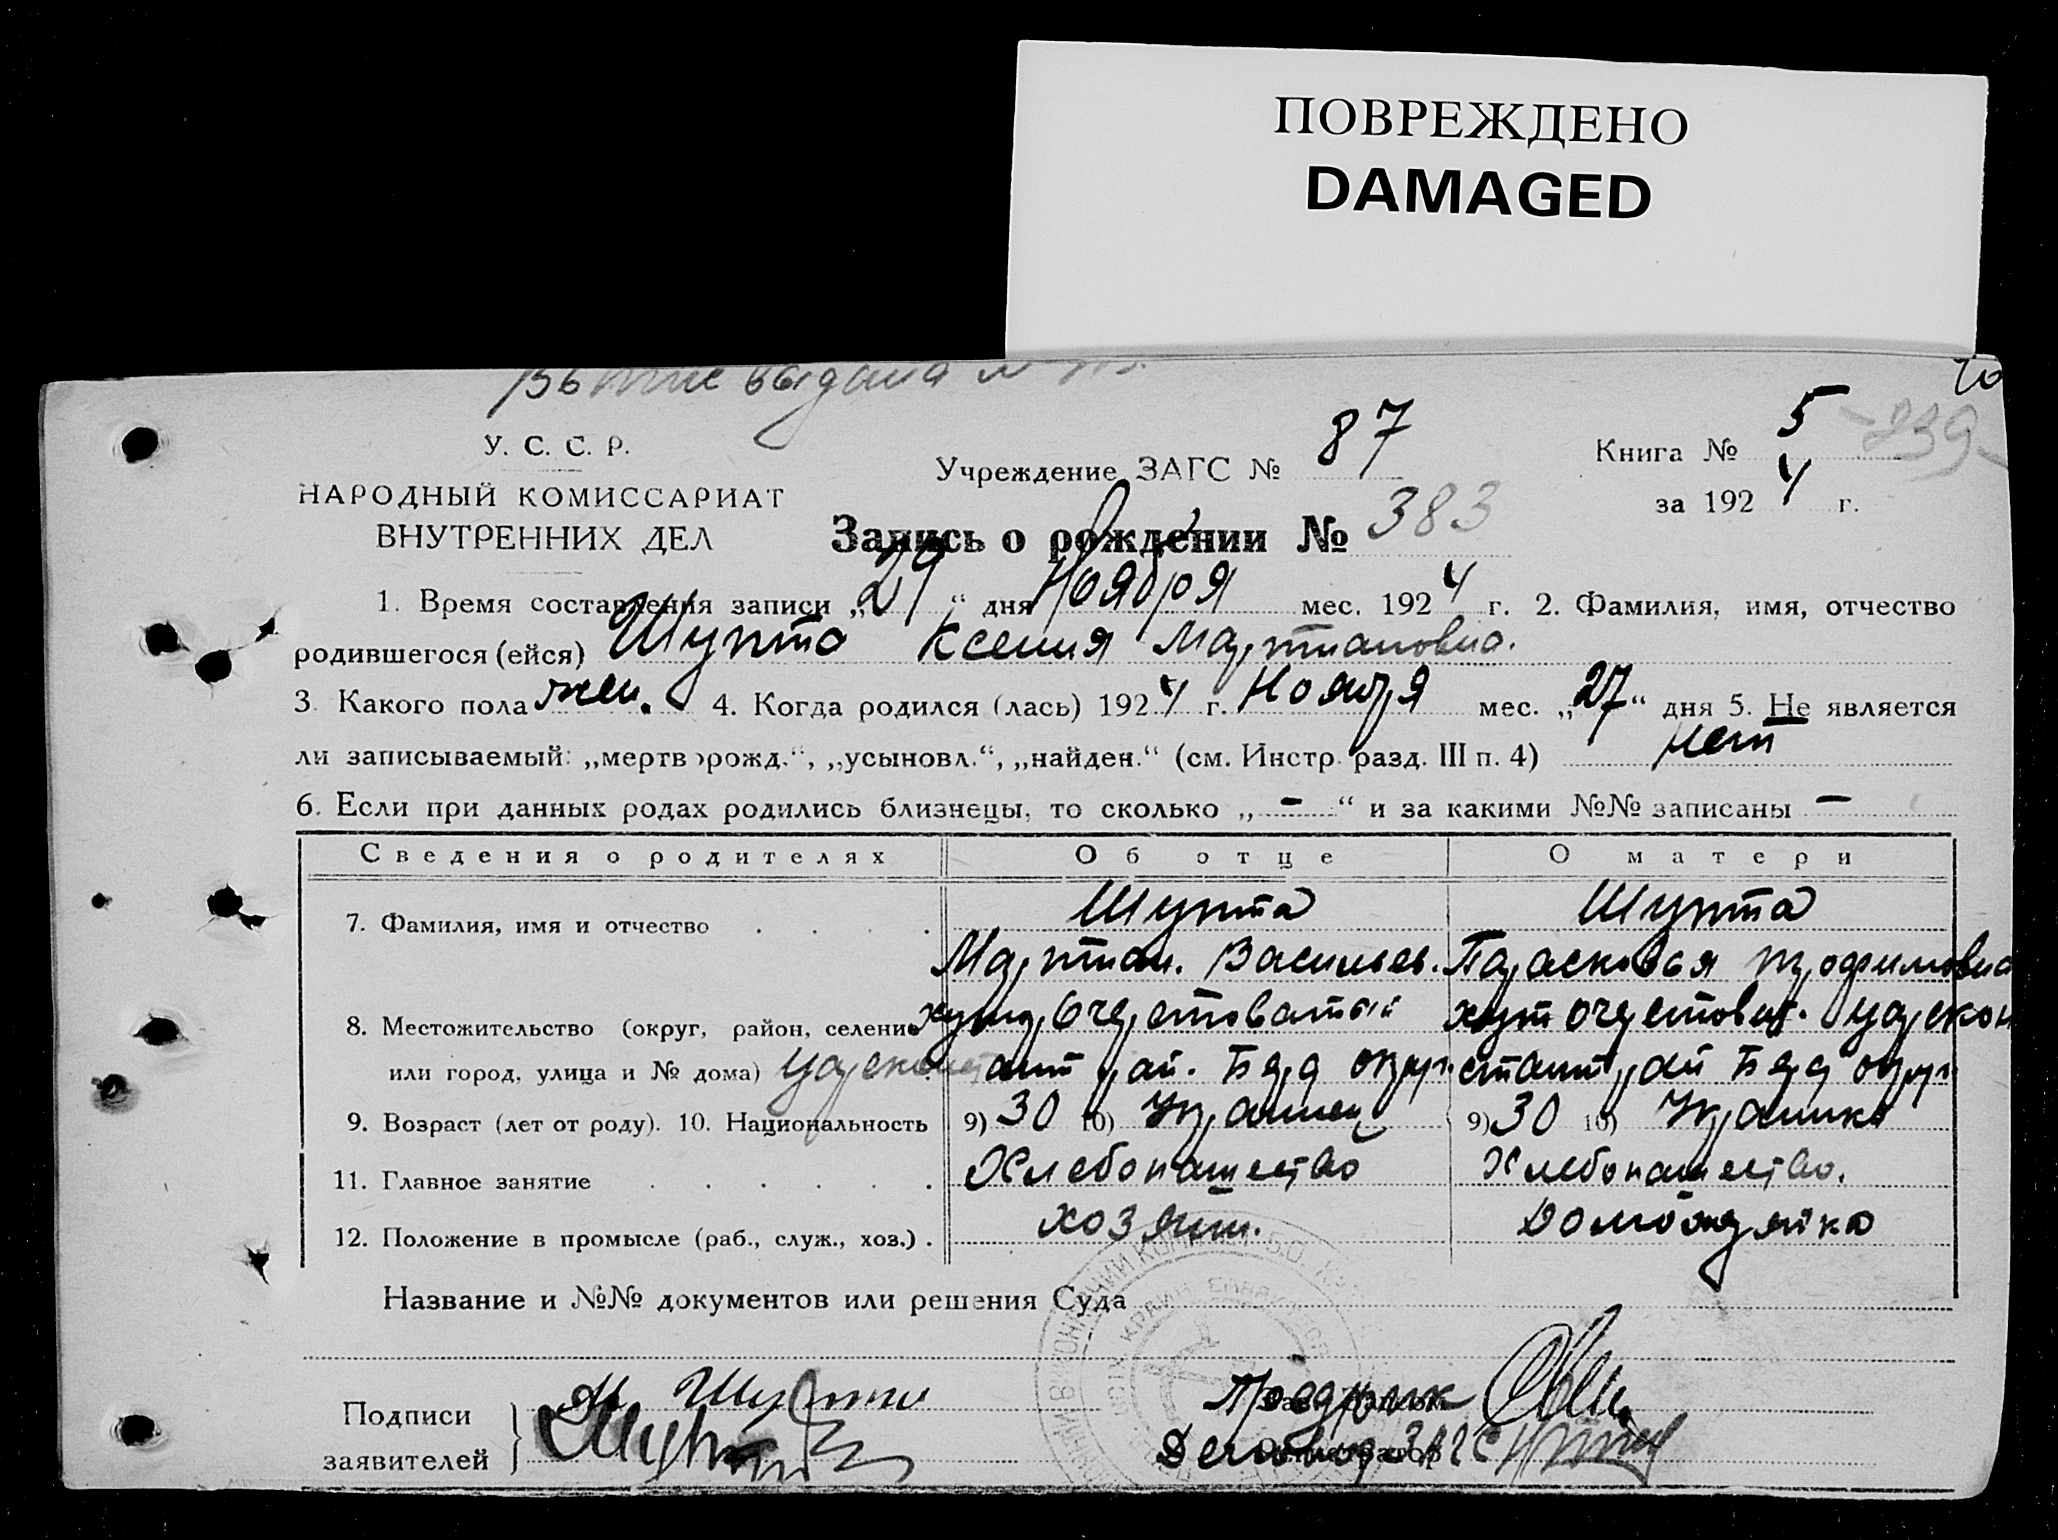 ПОВРЕЖДЕНО
DAMAGED
выдана
У. С. С. Р.
НАРОДНЫЙ КОМИССАРИАТ
ВНУТРЕННИХ ДЕЛ
Учреждение ЗАГС № 87
Книга № 5 -839-
за 1924 г.
Запись о рождении № 383
1. Время составления записи „29“ дня Ноября мес. 1924 г. 2. Фамилия, имя, отчество
родившегося (ейся) Шупта Ксения Мартиановна.
3. Какого пола жен. 4. Когда родился (лась) 1924 г. Ноября мес. „27“ дня 5. Не является
ли записываемый: „мертворожд.“, „усыновл.“, „найден.“ (см. Инстр. разд. III п. 4) нет
6. Если при данных родах родились близнецы, то сколько „-“ и за какими №№ записаны -
Сведения о родителях Об отце О матери
7. Фамилия, имя и отчество Шупта Шупта
Мартиан. Васильев. Парасковья Трофимовна
8. Местожительство (округ, район, селение
или город, улица и № дома)
9. Возраст (лет от роду). 10. Национальность 9) 30 10) Украинец 9) 30 10) Украинка
11. Главное занятие Хлебопашество Хлебопашество.
12. Положение в промысле (раб., служ., хоз.) хозяин. Домохозяйка
Название и №№ документов или решения Суда
Подписи
заявителей
Шупта